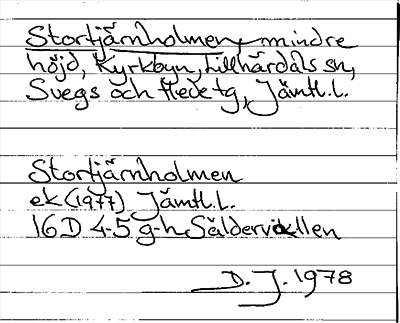 Stortjärnholmen, mindre
höjd, Kyrkbyn, Lillhärdals sn,
Svegs och Hede tg, Jämtl.L.
Stortjärnholmen
ek (1977) Jämtl.L.
16D 4-5 g-h Säldervallen
D.J. 1978